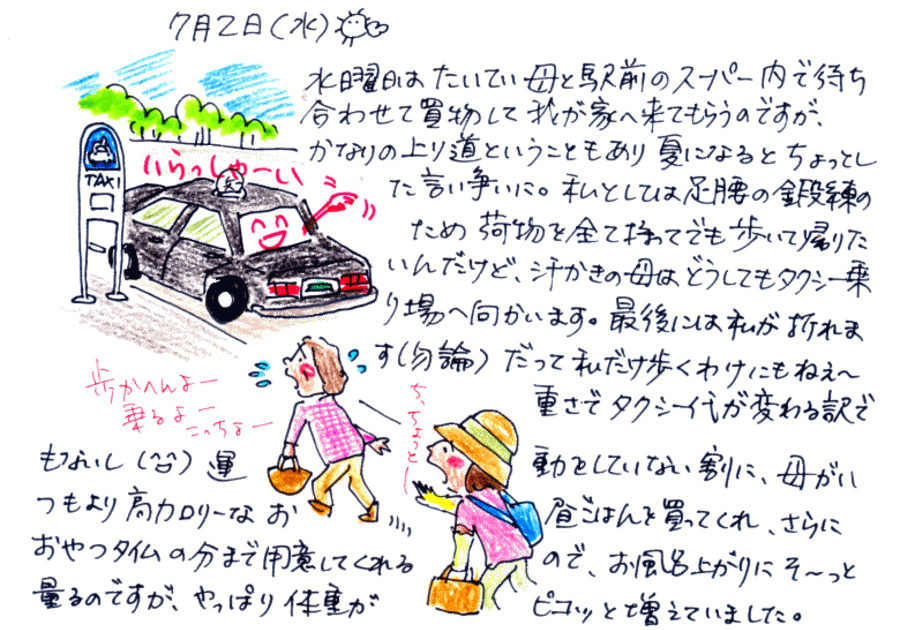 7月2日(水)
水曜日は たいてい 母と駅前のスーパー内で待ち
合わせて買物して 我が家へ来てもらうのですが、
かなりの上り道ということもあり 夏になると ちょっとし
た言い争いに。私としては足腰の鍛練の
ため 荷物を全て持ってでも歩いて帰りた
いんだけど、汗かきの母は どうしてもタクシー乗
り場へ向かいます。最後には私が折れま
す(勿論) だって私だけ歩くわけにもねえ〜
重さでタクシー代が変わる訳で
もないし(^^) 運動をしていない割に、母がい
つもより高カロリーな お昼ごはんを買ってくれ、さらに
おやつタイムの分まで用意してくれるので、お風呂上がりにそ〜っと
量るのですが、やっぱり体重がピコッと増えていました。
いらっしゃーい
TAXI
歩かへんよー
乗るよー
こっちよー
ち、ちょっとー